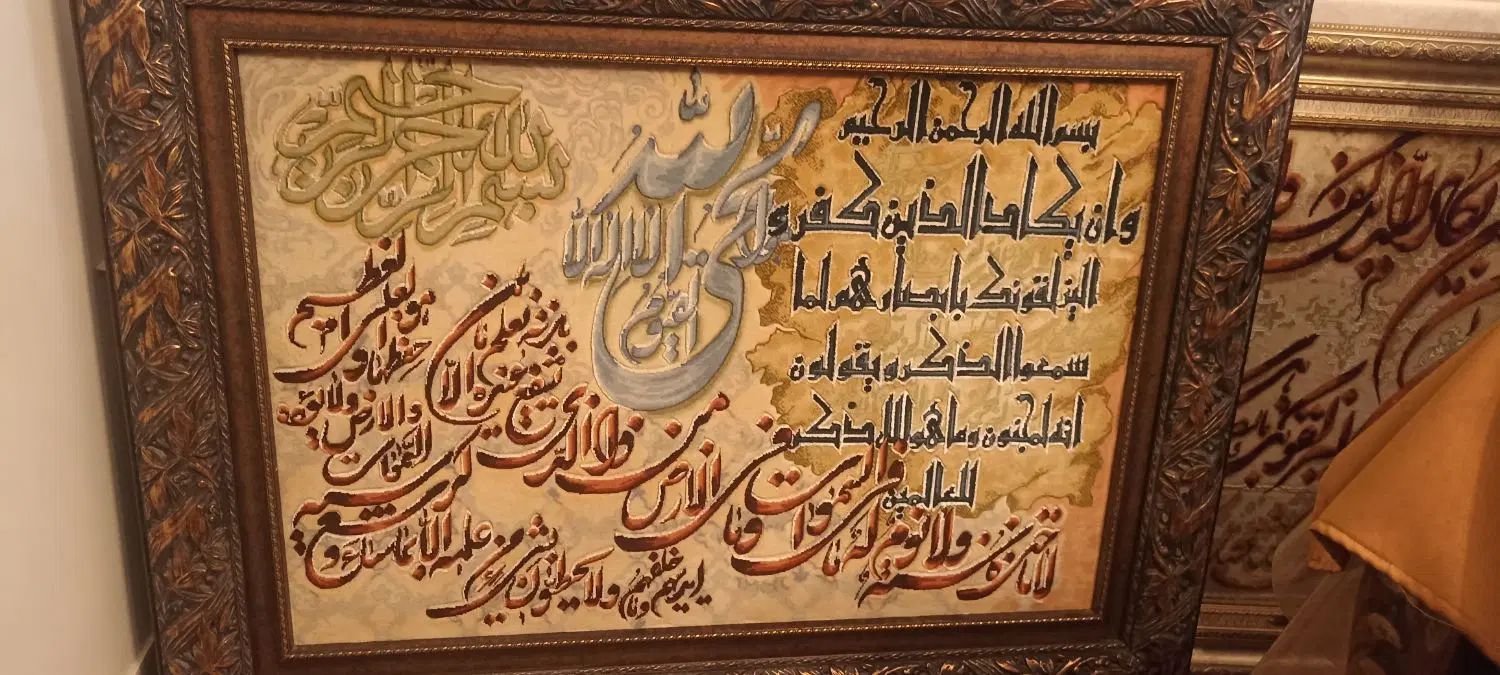 بسم الله الرحمن الرحيم
وان يكاد الذين كفروا
ليزلقونك بابصارهم لما
سمعوا الذكر و يقولون
انه لمجنون وما هو الا ذكر
للعالمين
بسم الله الرحمن الرحيم
الله لا اله الا هو الحي القيوم
لا تاخذه سنة ولا نوم له ما في السموات وما في الارض من ذا الذي يشفع عنده الا باذنه يعلم ما بين
ايديهم وما خلفهم ولا يحيطون بشيء من علمه الا بما شاء وسع كرسيه
السموات
والارض ولا يؤده
حفظهما و
هو العلي
العظيم